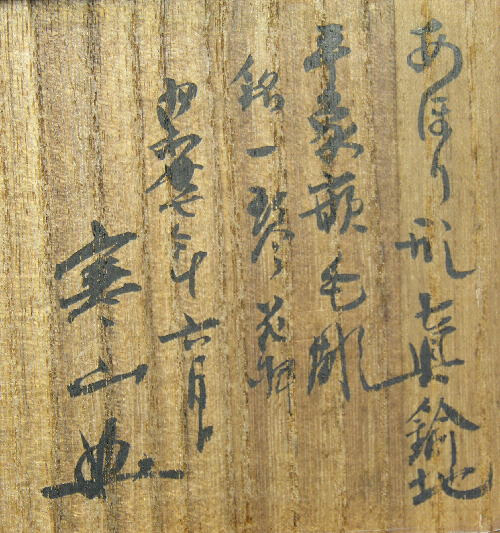 あほり形真鍮地
平象嵌毛彫
銘一琴花押
昭和卅七年六月
寒山